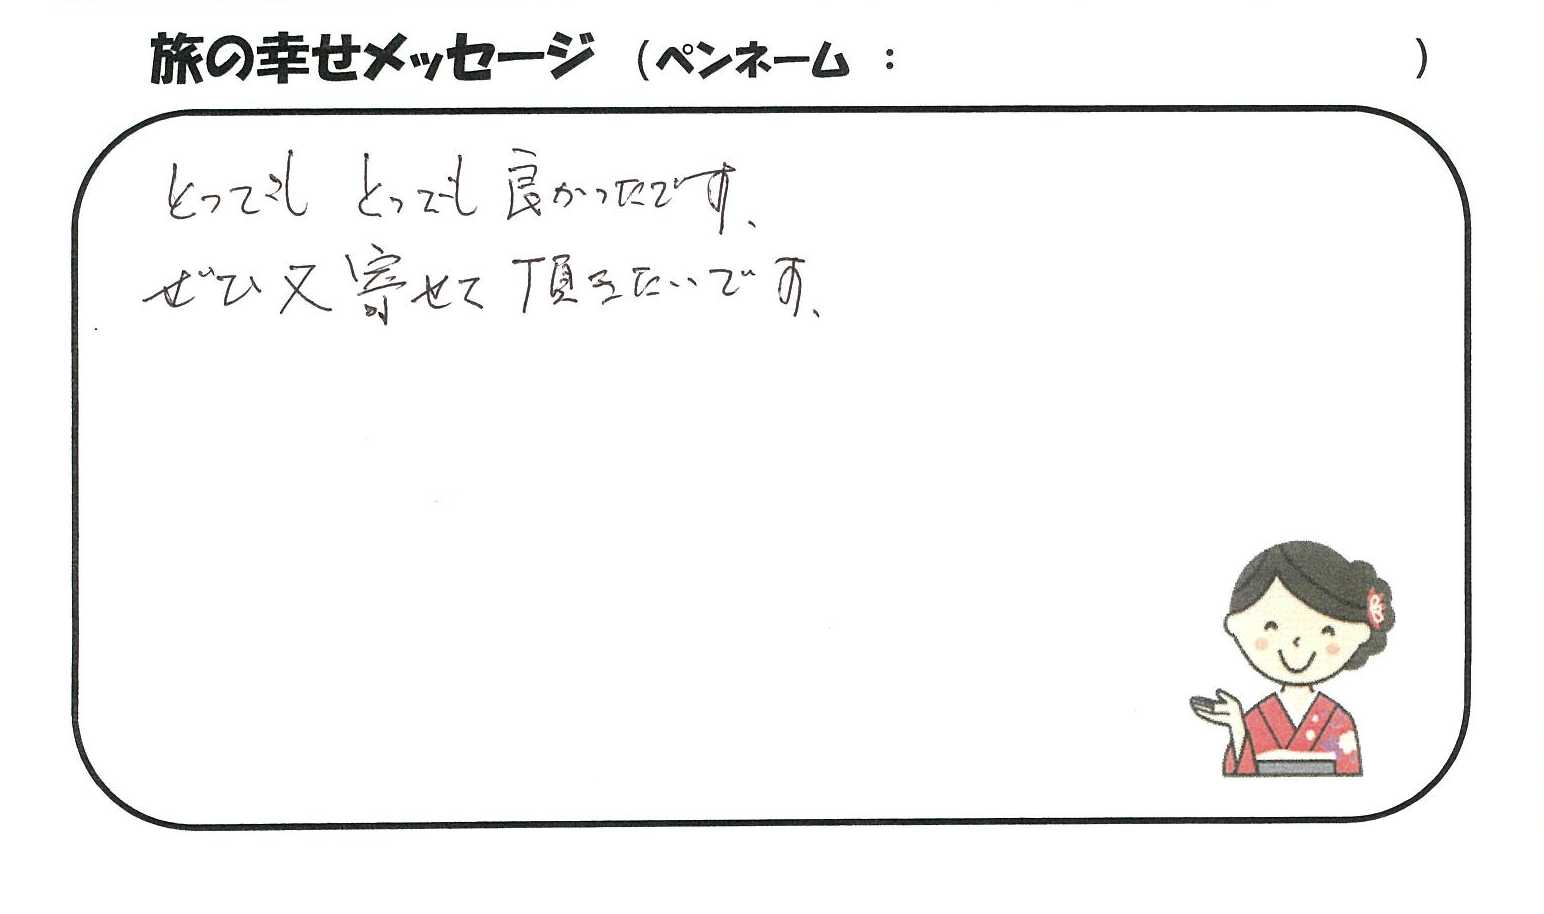 旅の幸せメッセージ (ペンネーム : )
とっても とっても 良かったです、
ぜひ 又 寄せて 頂きたいです、